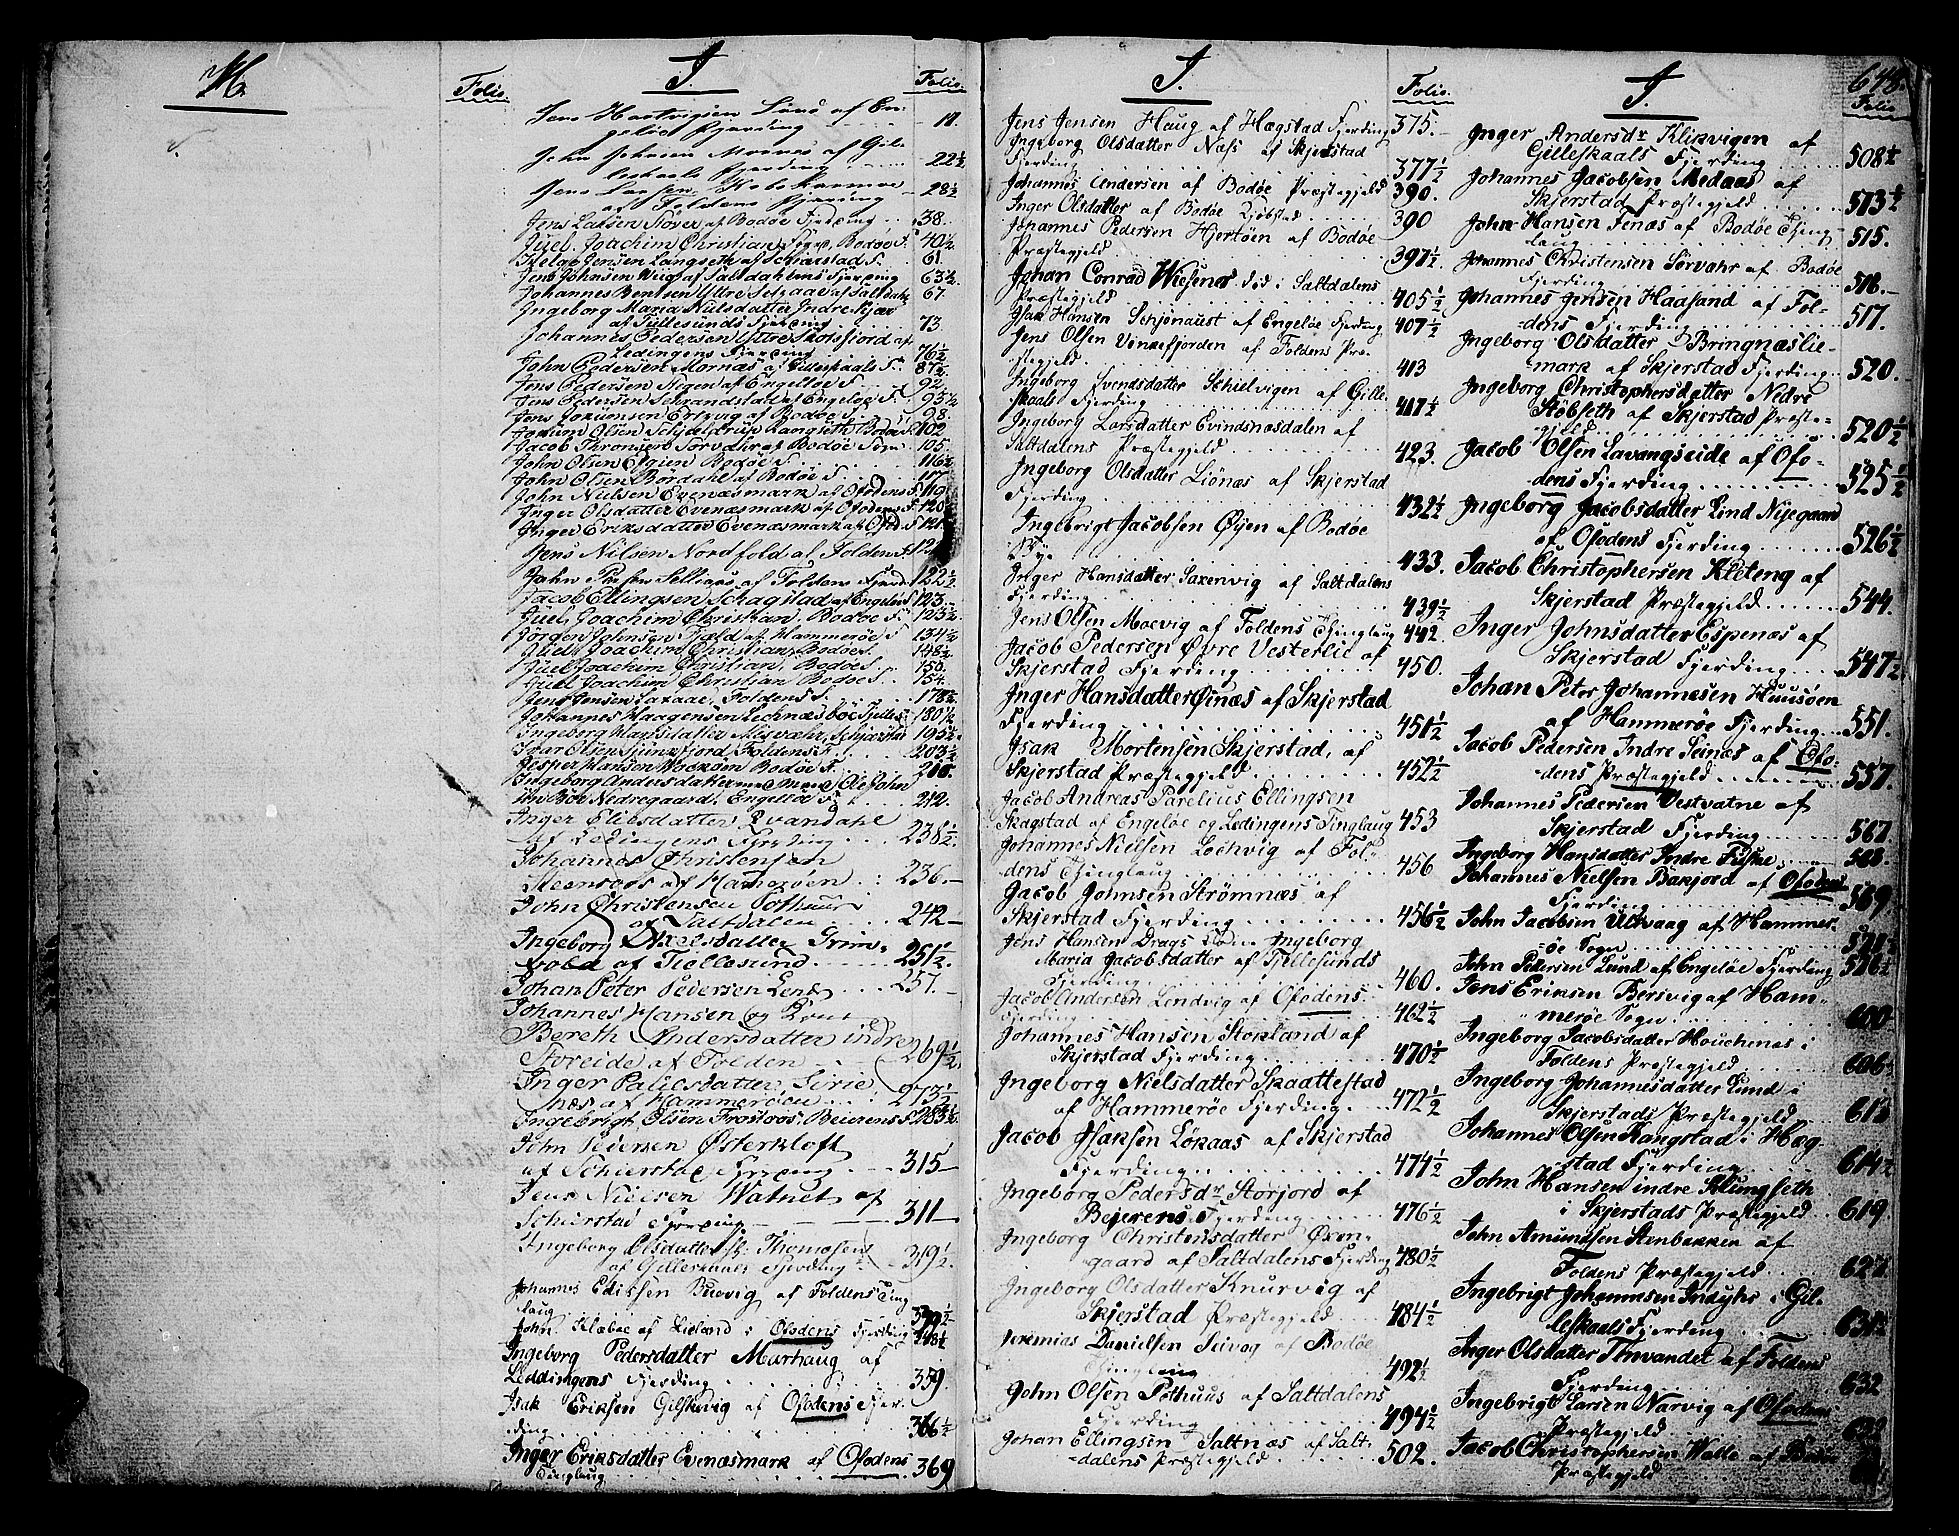 H.
Folio.
I.
Folio.
Jens Hartvigsen Lund af En-
geløe Fjerding 11.
John Johnsen Mornes af Gil-
leskaals Fjerding 22½
Jens Larsen
af Foldens Fjerding 28½
Jens Larsen Løver af Bodøe Fjerding 38.
Juel, Joachim Christian, Bodøe F. 40½
Helge Jensen Langseth af Schierstad F. 61.
Jens Johnsen af Saltdalens Fjerding 63½
Johannes Bentsen Yttre af Saltdals 67.
Ingeborg Maria Nilsdatter Indre
af Tjellesunds Fjerding 73.
Johannes Pedersen Yttre Skotsfjord af
Lødingens Fjerding 76½
John Pedersen Mornæs af Gilleskaals F. 87½
Jens Pedersen af Engeløe F. 92.
Jens Pedersen Schranstad af Engeløe F. 95½
Jens af Bodøe F. 98.
Jochum Olsen Schjeldrup Langseth Bodøe F. 102
Jacob Thronsen Sørvahr af Bodøe Sogn 105.
John Olsen Bodøe F. 116½
John Olsen Bordahl af Bodøe F. 117.
John Nielsen Evenæsmark af Ofodens F. 119.
Inger Olsdatter Evenæsmark af Ofodens F. 120
Inger Eriksdatter Evenæsmark af Ofod. F. 121.
Jens Nilsen Nordfold af Folden F. 121
John af Foldens Fjerd. 122½
Jacob Ellingsen Schagstad af Engeløe F. 123.
Juel, Joachim Christian, Bodøe F. 133½
Jörgen Johnsen af Hammerøe F. 134½
Juel, Joachim Christian, Bodøe F. 145½
Juel, Joachim Christian, Bodøe F. 150.
Juel, Joachim Christian Bodøe F. 154.
Jens Jensen Laxaae, Foldens F. 178½
Johannes Haagensen Tjelles. 180½
Ingeborg Misvahr, Schjærstad 195½
Iver Olsen, Foldens F. 203½
Jesper Hansen Bodøe F. 210.
Ingeborg Andersdatter med Mand Ole John-
sen Bøe Nedregaard, Engeløe F. 212.
Inger Ellebsdatter Qvandahl
af Lødingens Fjerding 236½
Johannes Christensen
af Hamerøen 236.
John Christensen Pothuus
af Saltdalen 242
Ingeborg Axelsdatter Grim-
af Tiellesund 251½
Johan Peter Pedersen 257.
Johannes Hansen og Kone
Bereth Andersdatter indre
Storeide af Folden 269½
Inger
næs af Hammerøen 273½
Ingebrigt Olsen Beierens F. 283½
John Peersen Østerkløft
af Schierstad Fjerding 315
Jens Nielsen Watnet af
Schierstad Fjerding 311
Ingeborg Olsdatter Thomæsens
af Gilleskaals Fjerding 319½
Johannes Edissen af Foldens Ting-
laug 339½
John Klæboe af Liland i Ofodens Fjerding 348½
Ingeborg Pedersdatter Marhaug af
Leddingens Fjerding 359.
Isak Eriksen af Ofodens Fjer-
ding 366½
Inger Eriksdatter Evenæsmark af Ofodens
Tinglaug 369
I.
Folio.
Jens Jensen Haug af Hægstad Fjerding 375.
Ingeborg Olsdatter Næss af Skjerstad
Fjerding 377½
Johannes Andersen af Bodøe Præstegjeld 390.
Inger Olsdatter af Bodøe Kjøbstad 390
Johannes Pedersen Hjertøen af Bodøe
Præstegjeld 397½
Johan Conrad i Saltdalens
Præstegjeld 405½
Isak Hansen af Engeløe Fjerding 407½
Jens Olsen Vinkefjorden af Foldens Præ-
stegjeld 413
Ingeborg Svendsdatter Schielvigen af Gille-
skaals Fjerding 417½
Ingeborg Larsdatter Evindnæsdalen af
Saltdalens Præstegjeld 423.
Ingeborg Olsdatter Liönæs af Skjerstad
Fjerding 432½
Ingebrigt Jacobsen Øyen af Bodøe
Bye 433.
Inger Hansdatter Saxenvig af Saltdalens
Fjerding 439½
Jens Olsen Moevig af Foldens Thinglaug 442.
Jacob Pedersen Øvre Vesterlie af
Skjerstad Fjerding 450.
Inger Hansdatter Øinæs af Skjerstad
Fjerding 451½
Isak Mortensen Skjerstad, af
Skjerstad Præstegjeld 452½
Jacob Andreas Parelius Ellingsen
Skagstad af Engeløe og Ledingens Tinglaug 453
Johannes Nielsen Lochvig af Fol-
dens Thinglaug 456
Jacob Johnsen Strømnæs af
Skjerstad Fjerding 456½
Jens Hansen Drags Ingeborg
Maria Jacobsdatter af Tjellesunds
Fjerding 460.
Jacob Andersen Lendvig af Ofodens
Fjerding 462½
Johannes Hansen Storland af
Skjerstad Fjerding 470½
Ingeborg Nielsdatter Skaattestad
af Hammerøe Fjerding 472½
Jacob Isaksen Lökaas af Skjerstad
Fjerding 474½
Ingeborg Pedersdr Storjord af
Bejerens Fjerding 476½
Ingeborg Christensdatter Øxen-
gaard af Saltdalens Fjerding 480½
Ingeborg Olsdatter Knurvig af
Skjerstad Præstegjeld 484½
Jeremias Danielsen Seivog af Bodøe
Thinglaug 492½
John Olsen Pothuus af Saltdalens
Fjerding 494½
Johan Ellingsen Saltnæs af Salt-
dalens Præstegjeld 502.
I.
644.
Folio
Inger Andersdr Klikvigen af
Gilleskaals Fjerding 508½
Johannes Jacobsen Medaas af
Skjerstad Præstegjeld 513½
John Hansen Fenæs af Bodøe Thing-
laug 515.
Johannes Christensen Sørvahr af Bodøe
Fjerding 516.
Johannes Jensen Haasand af Fol-
dens Fjerding 517.
Ingeborg Olsdatter Bringnæslie-
mark af Skjerstad Fjerding 520.
Ingeborg Christophersdatter Nedre
Støbseth af Skjerstad Præste-
gjeld 520½
Jacob Olsen Lavangseide af Ofo-
dens Fjerding 525½
Ingeborg Jacobsdatter Lind Nygaard
af Ofodens Fjerding 526½
Jacob Christophersen Kleteng af
Skjerstad Præstegjeld 544.
Inger Johnsdatter Espenæs af
Skjerstad Fjerding 547½
Johan Peter Johannesen Huusøen
af Hammerøe Fjerding 551.
Jacob Pedersen Indre Seinæs af Ofo-
dens Præstegjeld 557.
Johannes Pedersen Vestvatne af
Skjerstad Fjerding 567
Ingeborg Hansdatter Indre Fiske 568
Johannes Nielsen Bakjord af Ofodens
Fjerding 569
John Jacobsen Uldvaag af Hammer-
øe Sogn
John Pedersen Lund af Engeløe Fjerding
Jens Eriksen Bersvig af Ham-
merøe Sogn 600
Ingeborg Jacobsdatter Houchenes i
Foldens Præstegjeld 606½
Ingeborg Johannesdatter Lund i
Skjerstads Præstegjeld 613
Johannes Olsen Kangstad i Hæg-
stad Fjerding 614½
John Hansen indre Klungseth
i Skjerstads Præstegjeld 619
John Amundsen Stenbakken af
Foldens Præstegjeld 627.
Ingebrigt Johannesen Indyhr i Gil-
leskaals Fjerding 631½
Inger Olsdatter Tenvandet af Foldens
Fjerding 632
Ingebrigt Larsen Narvig af Ofodens
Præstegjeld 639
Jacob Christophersen Walle af Bodøe
Præstegjeld